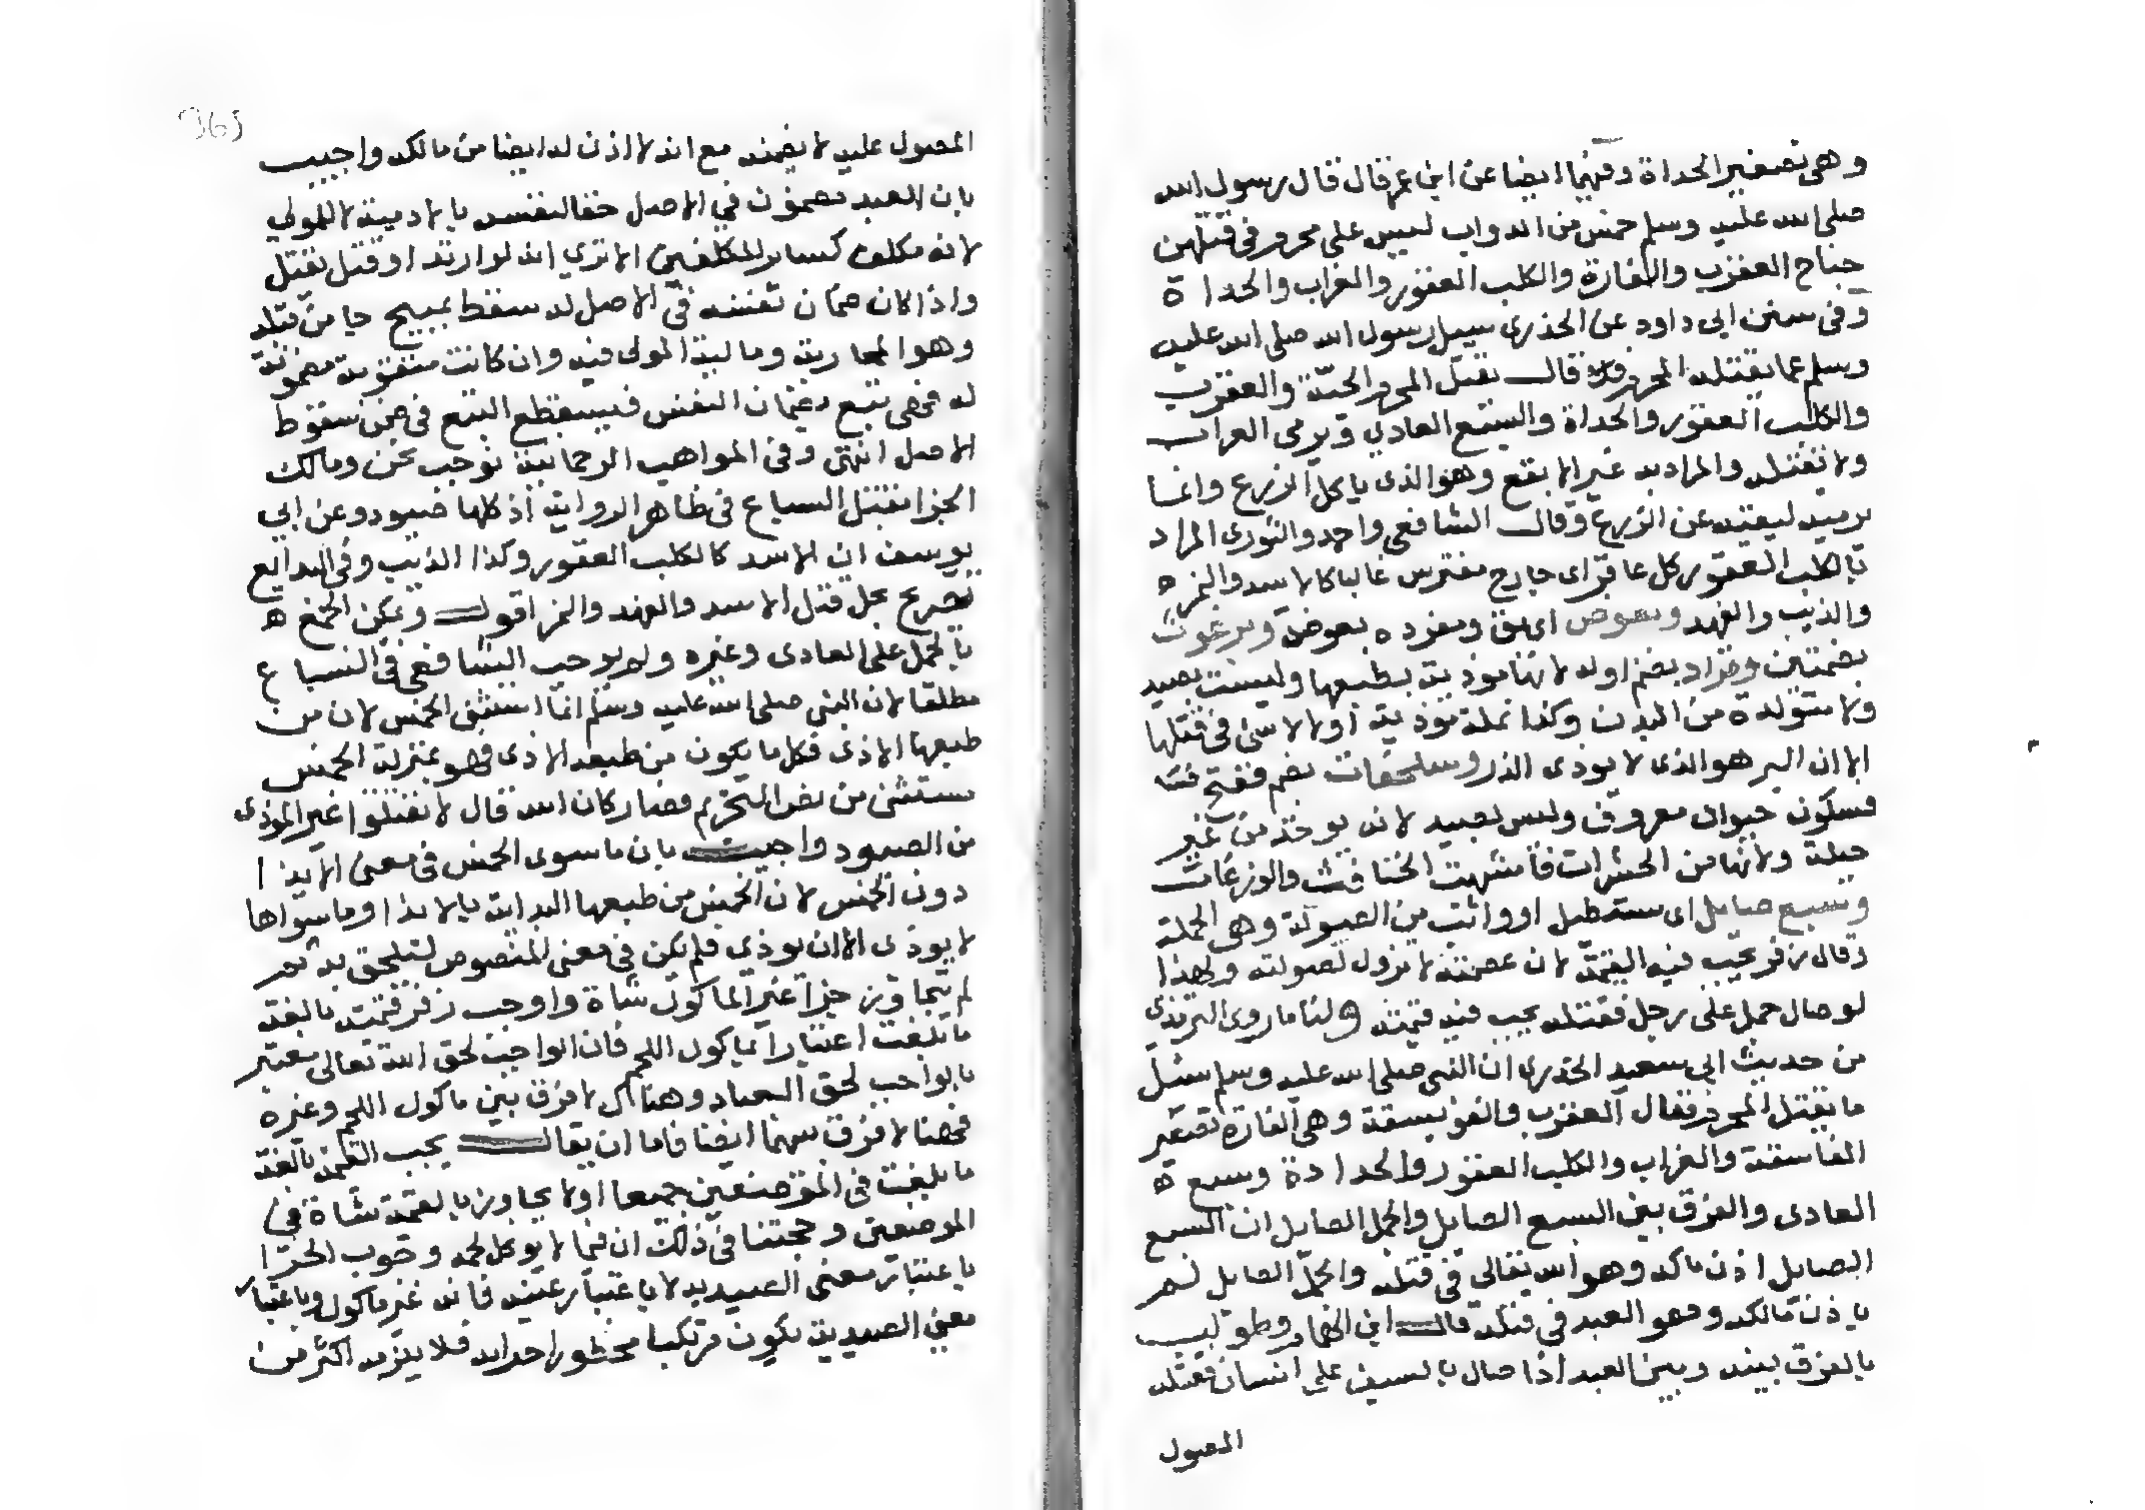 وهى تصغير الحداة وفيهما ايضا عن ابن عمر قال قال رسول الله
صلى الله عليه وسلم خمس من الدواب ليس على محرم فى قتلهن
جناح العقرب والفارة والكلب العقور والغراب والحداة
وفى سنن ابى داود عن الخدرى سيل رسول الله صلى الله عليه
وسلم عما يقتله المحرم قال يقتل المحرم الحية والعقرب
والكلب العقور والحداة والسبع العادي ويرمى الغراب
ولا يقتله والمراد به غير الابقع وهو الذى ياكل الزرع وانما
يرميه لينفيه عن الزرع وقال الشافعى واحمد والثورى المراد
بالكلب العقور كل عاقر اى جارح مفترس غالبا كالاسد والنمر
والذيب والفهد وبعوض اى بق ومفرده بعوضة وبرغوث
بضمتين وقراد بضم اوله لانها موذية بطبعها وليست بصيد
ولا متولدة من البدن وكذا نملة موذية اولا لا شئ فى قتلها
الا ان البر هو الذى لا يوذى الذر وسلحفات بضم ففتح
فسكون حيوان معروف وليس بصيد لانه يوخذ من غير
حيلة ولانها من الحشرات فاشبهت الخنافش والوزغات
وسبع صايل اى مستطيل او واثب من الصولة وهى الحملة
وقال زفر يجب فيه القيمة لان عصمته لا تزول لصولته ولهذا
لو صال جمل على رجل فقتله يجب فيه قيمته ولنا ما روى الترمذى
من حديث ابى سعيد الخدرى ان النبى صلى الله عليه وسلم سئل
ما يقتل المحرم فقال العقرب والفويسقة وهى الفارة تصغير
الفاسقة والغراب والكلب العقور والحداة وسبع
العادى والفرق بين السبع الصايل والجمل الصايل ان السبع
الصايل اذن مالكه وهو الله تعالى فى قتله والجمل الصايل لم
ياذن مالكه وهو العبد فى قتله قال ابن الهمام وطولب
بالفرق بينه وبين العبد اذا صال بالسيف على انسان فقتله
المصول
المصول عليه لا يضمنه مع انه لا اذن له ايضا من مالكه واجيب
بان العبد مضمون في الاصل حقا لنفسه بالادمية لا للمولي
لانه مكلف كساير المكلفين الا تري انه لو ارتد او قتل يقتل
واذا كان ضمان نفسه فى الاصل له سقط بمبيح جا من قتله
وهو المحاربة ومالية المولى فيه وان كانت متقومة مضمونة
له فهى تبع لضمان النفس فيسقط التبع فى ضمن سقوط
الاصل انتهى وفى المواهب الرحمانية نوجب نحن ومالك
الجزا بقتل السباع فى ظاهر الرواية اذ كلها صيود وعن ابي
يوسف ان الاسد كالكلب العقور وكذا الذيب وفى البدايع
تصريح بحل قتل الاسد والفهد والنمر اقول ويمكن الجمع
بالحمل على العادى وغيره ولم يوجب الشافعى فى السباع
مطلقا لان النبى صلى الله عليه وسلم انما استثنى الخمس لان من
طبعها الاذى فكل ما يكون من طبعه الاذى فهو بمنزلة الخمس
مستثنى من نص التحريم فصار كان الله قال لا تقتلوا غير الموذى
من الصيود واجيب بان ما سوى الخمس فى معنى الايذا
دون الخمس لان الخمس من طبعها البداية بالايذا وما سواها
لا يوذى الا ان يوذي فلم يكن فى معنى المنصوص ليلحق به ثم
لم يتجاوز جزا غير الماكول شاة واوجب زفر قيمته بالغة
ما بلغت اعتبارا بماكول اللحم فان الواجب لحق الله تعالى معتبر
بالواجب لحق العباد وهناك لا فرق بين ماكول اللحم وغيره
فههنا لا فرق بينهما ايضا فاما ان يقال يجب القيمة بالغة
ما بلغت فى الموضعين جميعا اولا يجاوز بالقيمة شاة فى
الموضعين وحجتنا فى ذلك ان فيما لا يوكل لحمه وجوب الجزا
باعتبار معنى الصيدية لا باعتبار عينه فانه غير ماكول وباعتبار
معنى الصيدية يكون مرتكبا محظور احرامه فلا يلزمه اكثر من